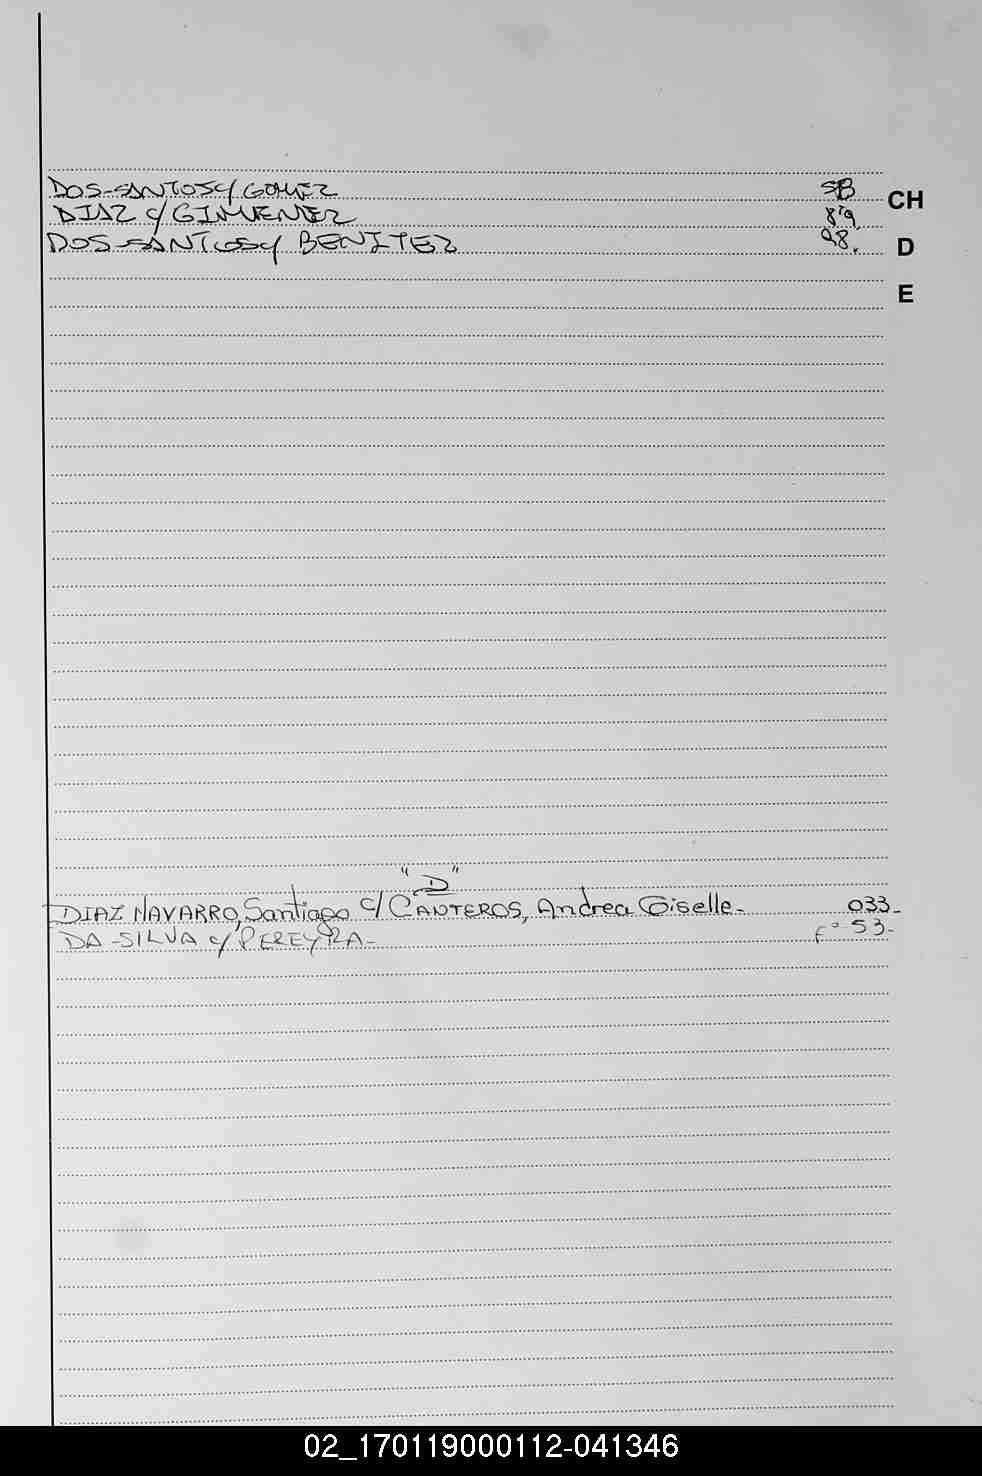 DOS-SANTOS c/ GOMEZ 58
DIAZ c/ GIMENEZ 89
DOS-SANTOS c/ BENITEZ 98.
CH
D
E
"D"
DIAZ NAVARRO, Santiago c/ CANTEROS, Andrea Giselle- 033-
DA-SILVA c/ PEREYRA- F° 53-
02_170119000112-041346